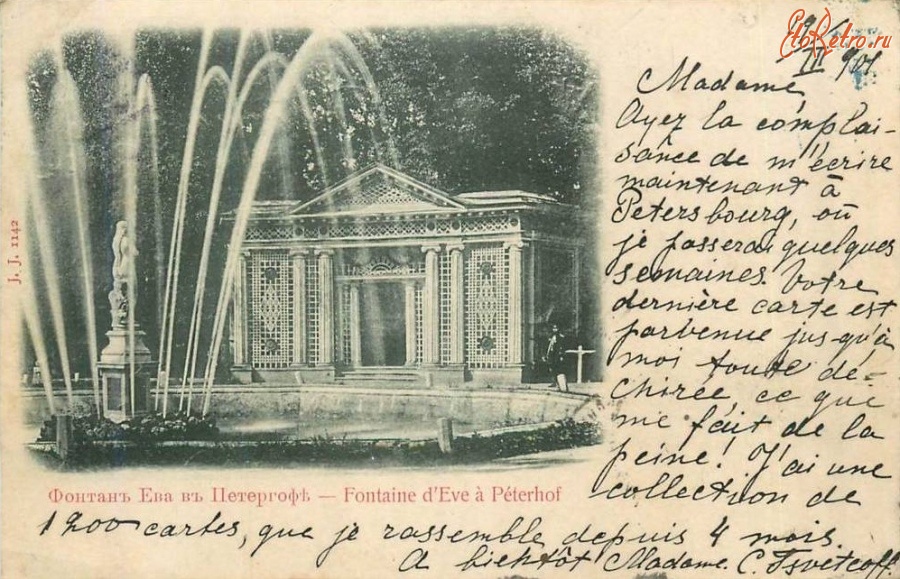 EtoRetro.ru
19/IV 901
Madame,
Ayez la complai-
sance de m'écrire
maintenant à
Petersbourg, où
je passerai quelques
semaines. Votre
dernière carte est
parvenue jusqu'à
moi toute dé-
chirée, ce que
me fait de la
peine! J'ai une
collection de
1200 cartes, que je rassemble depuis 4 mois.
A bientôt Madame. C. Tsvetcoff.
J. J. 1142
Фонтанъ Ева въ Петергофѣ — Fontaine d'Eve à Péterhof